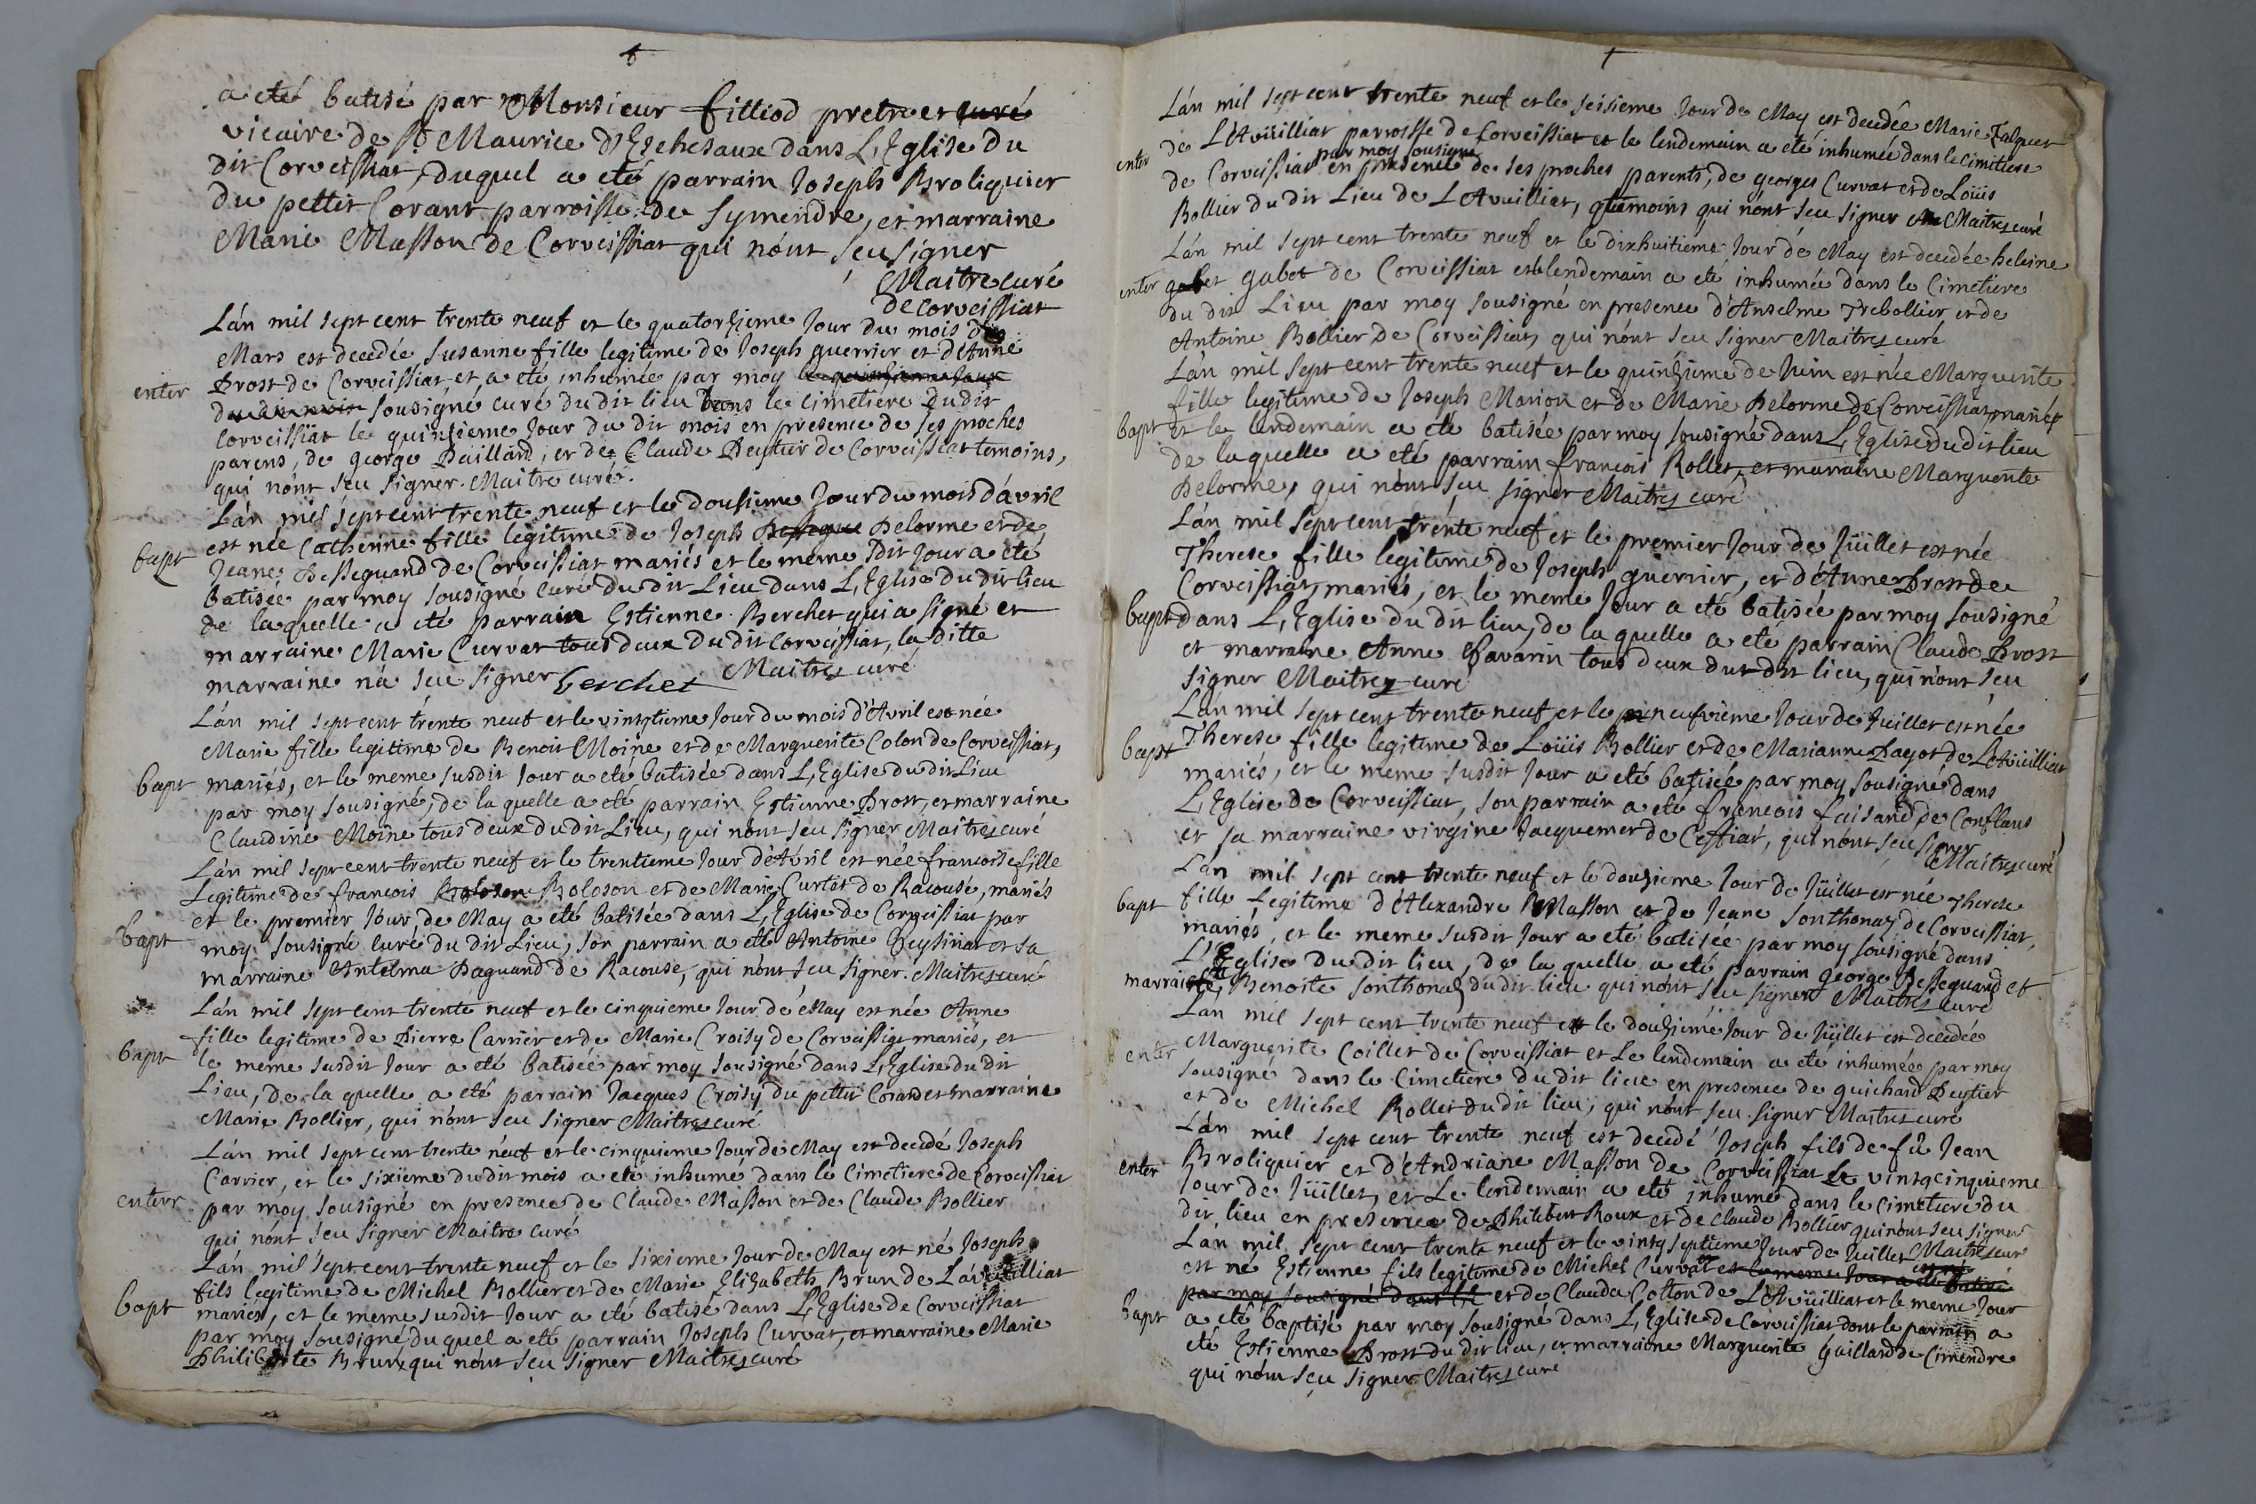 a eté batisé par Monsieur filliod pretre et curé
vicaire de St Maurice d'Echesaux dans L'Eglise du
dit Corveissiat, duquel a eté parrain Joseph Broliquier
du pettit Corant parroisse de Symendre, et marraine
Marie Masson de Corveissiat qui n'ont seu signer
Maitre curé
de corveissiat
L'án mil sept cent trente neuf et le quatorzieme Jour du mois de
Mars est decedée Susanne fille legitime de Joseph guerrier et d'Anne
enter Brost de Corveissiat, et a eté inhumée par moy le quinzieme Jour
du dit mois sousigné curé du dit lieu dans le cimetiere du dit
Corveissiat le quinzieme Jour du dit mois en presence de ses proches
parens, de george Paillard, et de Claude Peytier de Corveissiat temoins,
qui n'ont seu signer. Maitre curé.
L'án mil sept cent trente neuf et le dousieme Jour du mois d'ávril
est née Catherine fille legitime de Joseph Delorme et de
bapt Jeane Bessequand de Corveissiat mariés et le meme dit Jour a eté
batisée par moy sousigné curé du dit Lieu dans L'Eglise du dit lieu
de laquelle a eté parrain Estienne Berchet qui a signé et
marraine Marie Curvat tous deux du dit Corveissiat, la ditte
marraine n'a seu signer berchet Maitre curé
L'án mil sept cent trente neuf et le vintqtieme Jour du mois d'Avril est née
Marie fille legitime de Benoit Moine et de Marguerite Colon de Corveissiat,
bapt mariés, et le meme susdit Jour a eté batisée dans L'Eglise du dit Lieu
par moy sousigné, de la quelle a eté parrain Estienne Brost, et marraine
Claudine Moine tous deux du dit Lieu, qui n'ont seu signer Maitre curé
L'án mil sept cent trente neuf et le trentieme Jour d'Avril est née francoise fille
Legitime de francois Boloson et de Marie Curtet de Racouse, mariés
et le premier Jour de May a eté batisée dans L'Eglise de Corveissiat par
bapt moy sousigné curé du dit Lieu, son parrain a eté Antoine Peysinat et sa
marraine Antelma Paguand de Racouse, qui n'ont seu signer. Maitre curé
L'án mil sept cent trente neuf et le cinquieme Jour de May est née Anne
fille legitime de Pierre Carrier et de Marie Croisy de Corveissiat mariés, et
bapt le meme susdit Jour a eté batisée par moy sousigné dans L'Eglise du dit
Lieu, de la quelle a eté parrain Jacques Croisy du pettit Corand et marraine
Marie Bollier, qui n'ont seu signer Maitre curé
L'án mil sept cent trente neuf et le cinquieme Jour de May est decedé Joseph
Carrier, et le sixieme du dit mois a eté inhumé dans le Cimetiere de Corveissiat
enterr par moy sousigné en presence de Claude Masson et de Claude Bollier
qui n'ont seu signer Maitre curé
L'án mil sept cent trente neuf et le sixieme Jour de May est né Joseph
fils legitime de Michel Bollier et de Marie Elizabeth Brun de L'Avuilliat
bapt mariés, et le meme susdit Jour a eté batisé dans L'Eglise de Corveissiat
par moy sousigné duquel a eté parrain Joseph Curvat, et marraine Marie
Philiberte Brun, qui n'ont seu signer Maitre curé
L'án mil sept cent trente neuf et le seisieme Jour de May est decedée Marie Falquet
enter de L'Avüilliat parroisse de Corveissiat et le lendemain a eté inhumée dans le cimetiere
par moy sousigné
de Corveissiat en presence de ses proches parents, de georges Curvat et de Loüis
Bollier du dit Lieu de L'Avuilliat, temoins qui n'ont seu signer Maitre curé
L'án mil sept cent trente neuf et le dixhuitieme Jour de May est decedée heleine
enter gabet de Corveissiat et le lendemain a eté inhumée dans le Cimetiere
du dit Lieu par moy sousigné en presence d'Anselme Trebollier et de
Antoine Bollier de Corveissiat, qui n'ont seu signer Maitre curé
L'án mil sept cent trente neuf et le quinzieme de Juin est née Marguerite
fille legitime de Joseph Marion et de Marie Delorme de Corveissiat, mariés
bapt et le lendemain a eté batisée par moy sousigné dans L'Eglise du dit lieu
de laquelle a eté parrain francois Rollet, et marraine Marguerite
Delorme, qui n'ont seu signer Maitre curé
L'án mil sept cent trente neuf et le premier Jour de Jüillet est née
Therese fille legitime de Joseph guerrier, et d'Anne Brost de
Corveissiat, mariés, et le meme Jour a eté batisée par moy sousigné
bapt dans L'Eglise du dit lieu, de la quelle a eté parrain Claude Brost
et marraine Anne Chavarin tous deux du dit lieu, qui n'ont seu
signer Maitre curé
L'án mil sept cent trente neuf et le neufvieme Jour de Juillet est née
bapt Therese fille legitime de Loüis Bollier et de Marianne Pagot de L'Avüilliat
mariés, et le meme susdit Jour a eté batisée par moy sousigné dans
L'Eglise de Corveissiat, son parrain a eté francois faisand de Conflans
et sa marraine virgine Jacquemet de Ceffiat, qui n'ont seu signer
Maitre curé
L'án mil sept cent trente neuf et le douzieme Jour de Jüillet est née Therese
bapt fille Legitime d'Alexandre Masson et de Jeane Sonthonaz de Corveissiat,
mariés, et le meme susdit Jour a eté batisée par moy sousigné dans
L'Eglise du dit lieu, de la quelle a eté parrain george Bessequand et
marraine Benoite Sonthonaz du dit lieu qui n'ont seu signer Maitre curé
L'án mil sept cent trente neuf et le douzieme Jour de Jüillet est decedée
enter Marguerite Coillet de Corveissiat et Le lendemain a eté inhumée par moy
sousigné dans le Cimetiere du dit lieu en presence de guichard Peytier
et de Michel Rollet du dit lieu, qui n'ont seu signer Maitre curé
L'án mil sept cent trente neuf est decedé Joseph fils de fû Jean
enter Broliquier et d'Andriane Masson de Corveissiat Le vintqcinquieme
Jour de Jüillet, et Le lendemain a eté inhumé dans le cimetiere du
dit lieu en presence de Philibert Roux et de Claude Bollier qui n'ont seu signer
Maitre curé
L'án mil sept cent trente neuf et le vintq septieme Jour de Juillet
est né Estienne fils legitime de Michel Curvat et le meme Jour a eté batisé
par moy sousigné dans L'E et de Clauda Cotton de L'Avüilliat et le meme Jour
Bapt a eté baptisé par moy sousigné dans L'Eglise de Corveissiat dont le parrain a
eté Estienne Brost du dit lieu, et marraine Marguerite Gaillard de Cimendre
qui n'ont seu signer Maitre curé